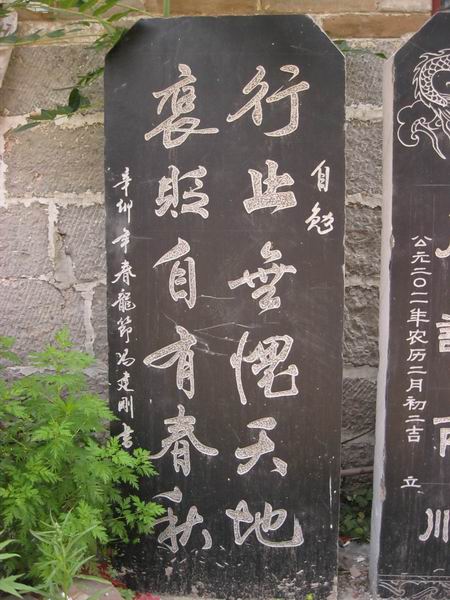 公元二〇一一年农历二月初二吉 立
自勉
行止無愧天地
褒貶自有春秋
辛卯年春龍節冯建剛書